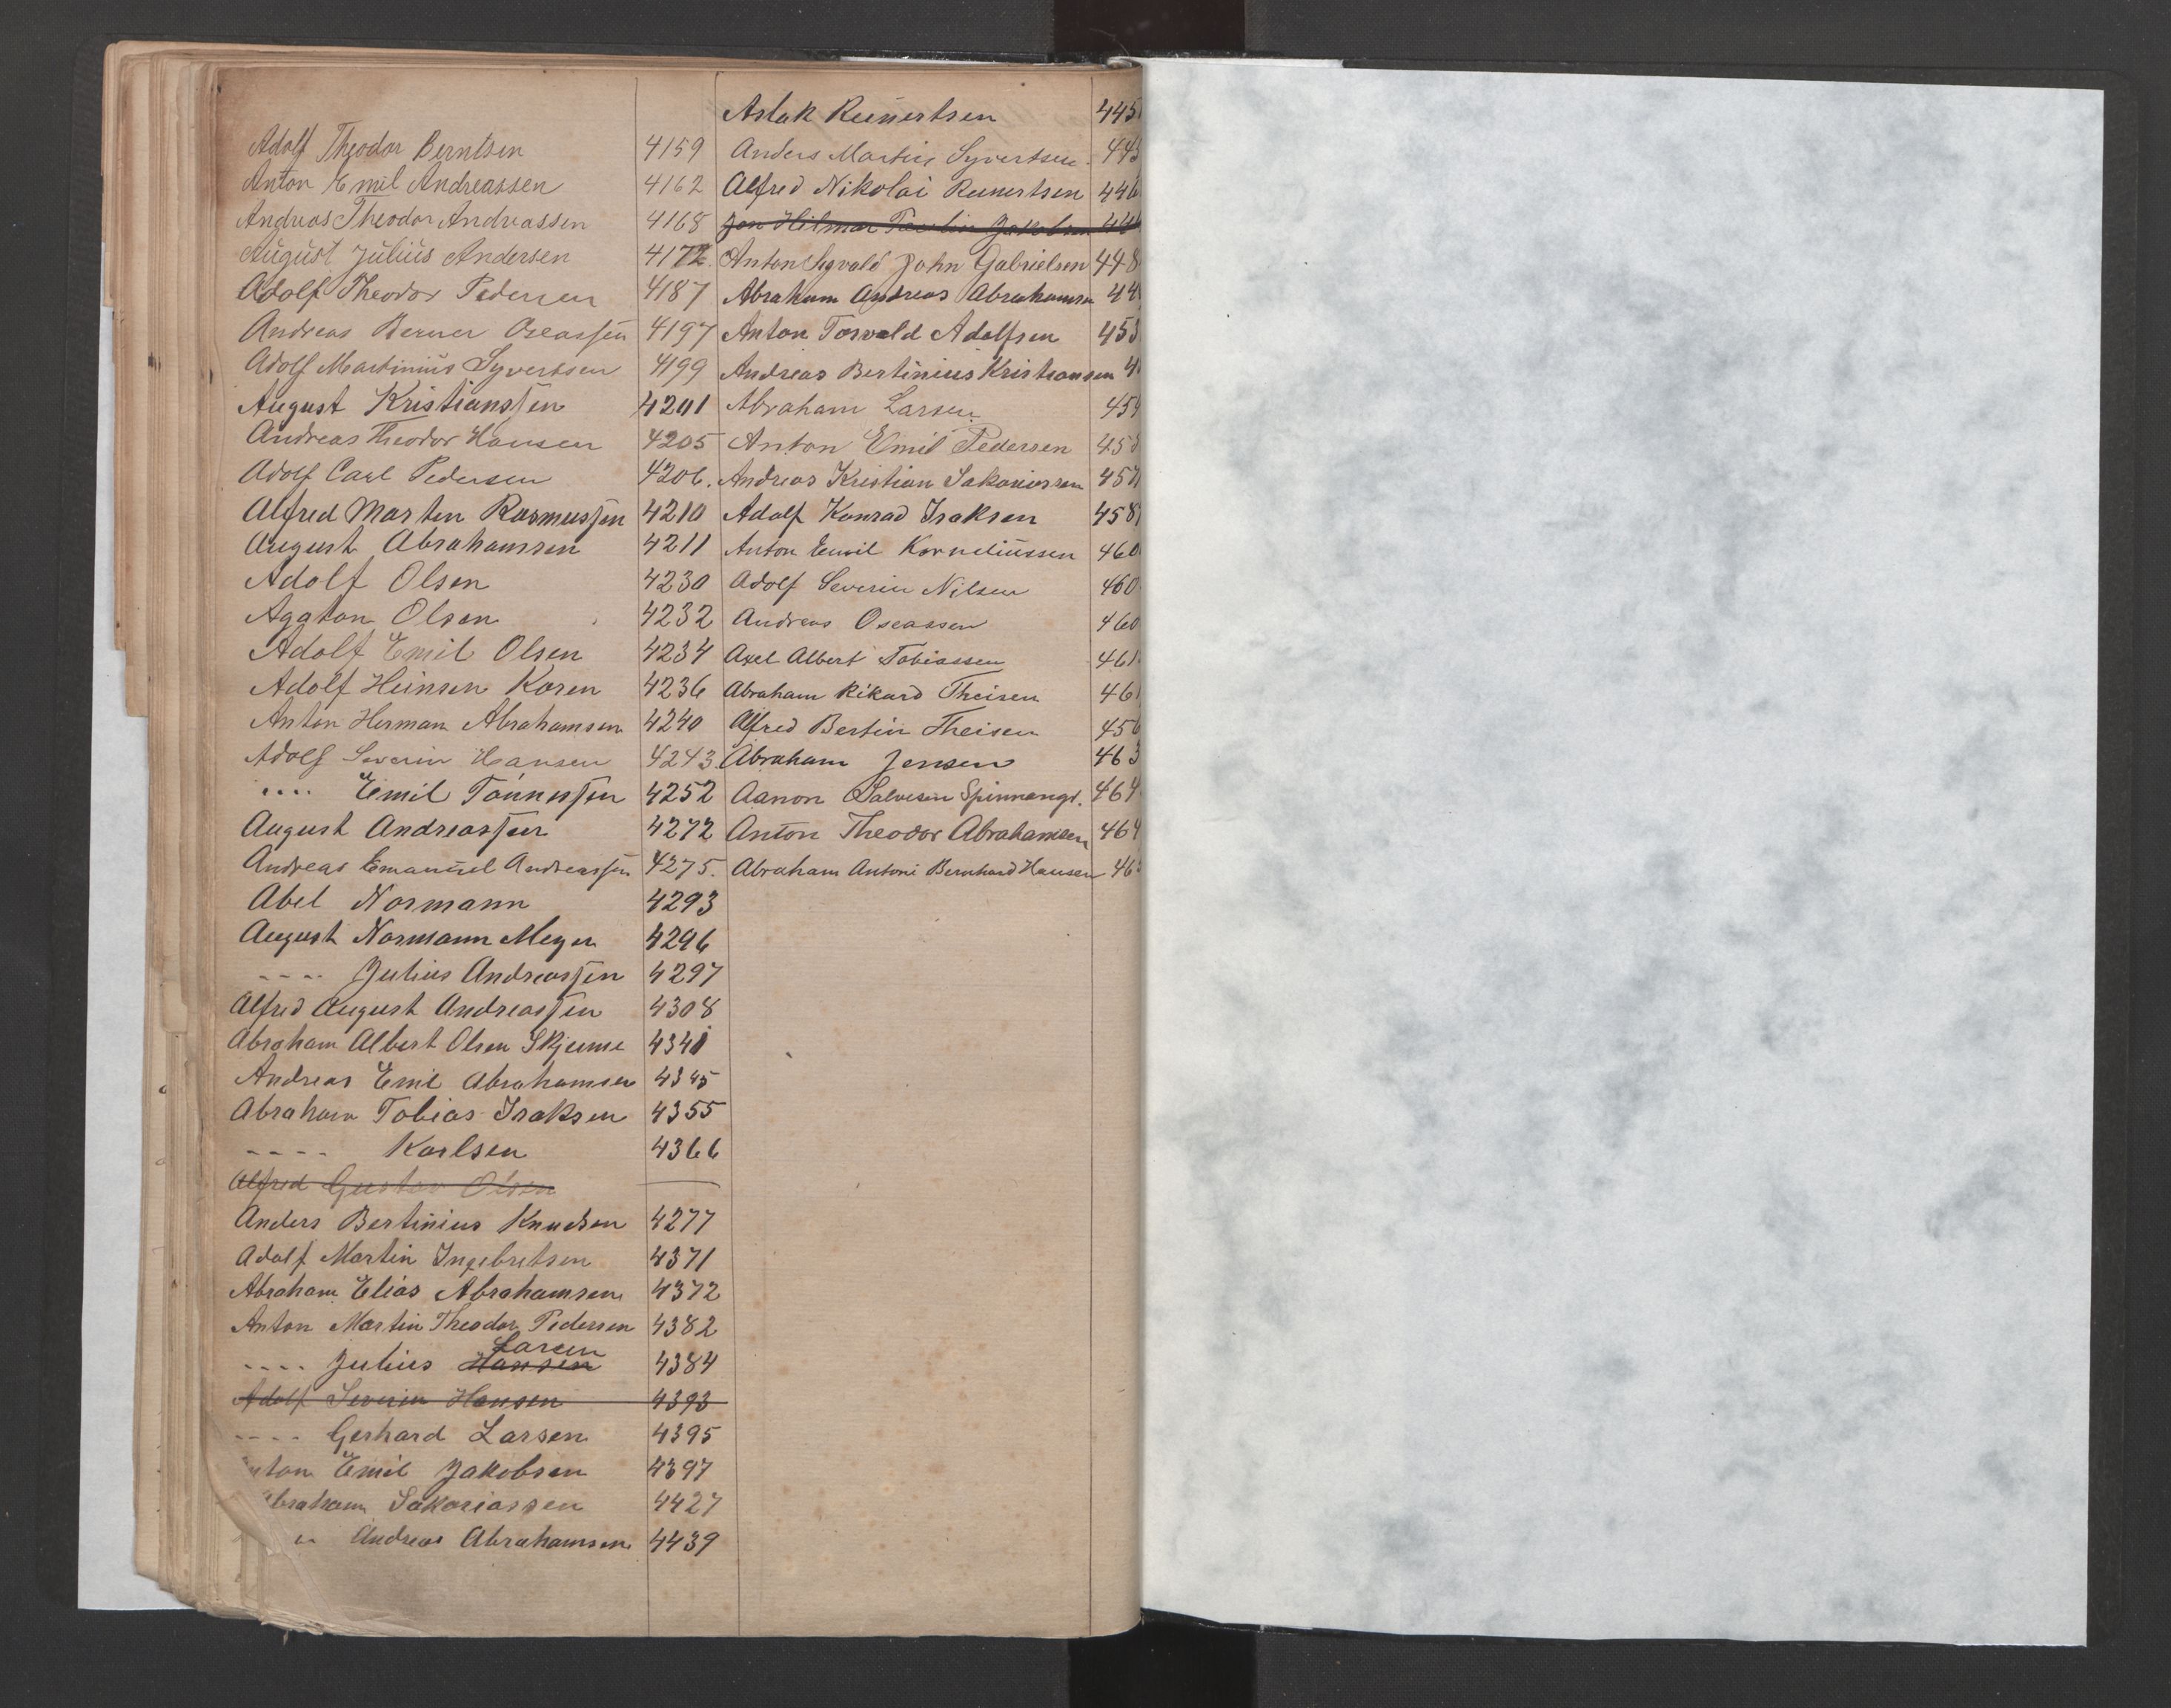 Adolf Theodor Berntsen 4159
Anton Emil Andreassen 4162
Andreas Theodor Andreassen 4168
August Julius Andersen 4172.
Adolf Theodor Pedersen 4187
Andreas Berner Oseassen 4197
Adolf Martinius Syvertsen 4199
August Kristianssen 4201
Andreas Theodor Hansen 4205
Adolf Carl Pedersen 4206.
Alfred Marten Rasmussen 4210
August Abrahamsen 4211
Adolf Olsen 4230
Agaton Olsen 4232
Adolf Emil Olsen 4234
Adolf Heinsen Koren 4236
Anton Herman Abrahamsen 4240
Adolf Severin Hansen 4243.
" " Emil Tönnessen 4252
August Andreassen 4272
Andreas Emanuel Andreassen 4275.
Abel Normann 4293
August Normann Meyer 4296
---- Julius Andreassen 4297
Alfred August Andreassen 4308
Abraham Albert Olsen 4341
Andreas Emil Abrahamsen 4345
Abraham Tobias Isaksen 4355
---- Karlsen 4366
Alfred Gustav Olsen
Anders Bertinius Knudsen 4277
Adolf Martin Ingebretsen 4371
Abraham Elias Abrahamsen 4372
Anton Martin Theodor Pedersen 4382
Larsen
---- Julius Hansen 4384
Adolf Severin Hansen 4393
---- Gerhard Larsen 4395
nton Emil Jakobsen 4397
braham Sakariassen 4427
" Andreas Abrahamsen 4439
Aslak Reinertsen 445
Anders Martin Syvertsen. 443
Alfred Nikolai Reinertsen 446
Hilmar Jakobsen 44
Anton Sigvald John Gabrielsen 448
Abraham Andreas Abrahamsen 44
Anton Torvald Adolfsen 453
Andreas Bertinius Kristiansen 4
Abraham Larsen 454
Anton Emil Pedersen 458
Andreas Kristian Sakariassen 457
Adolf Konrad Isaksen 458
Anton Emil Korneliussen 460
Adolf Severin Nilsen 460
Andreas Oseassen 460
Axel Albert Tobiassen 461
Abraham Rikard Theisen 461
Alfred Bertin Theisen 456
Abraham Jensen 463
Aanon Salvesen Spinnangr. 464
Anton Theodor Abrahamsen 464
Abraham Antoni Bernhard Hansen 46